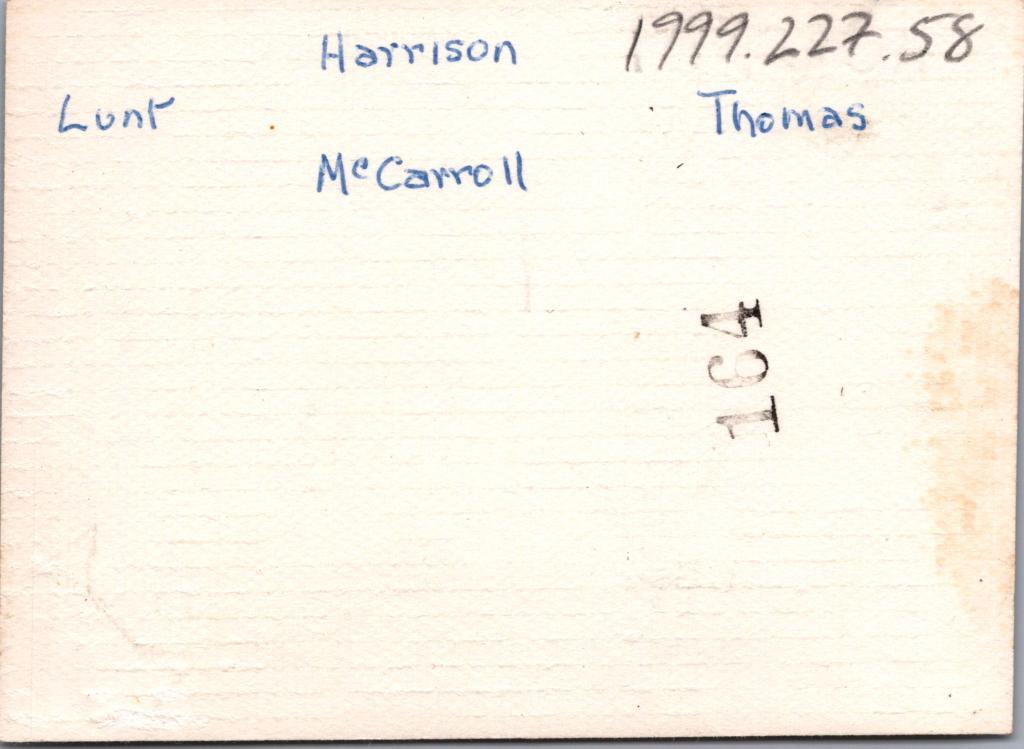 Harrison 1999.227.58
Lunt Thomas
McCarroll
164